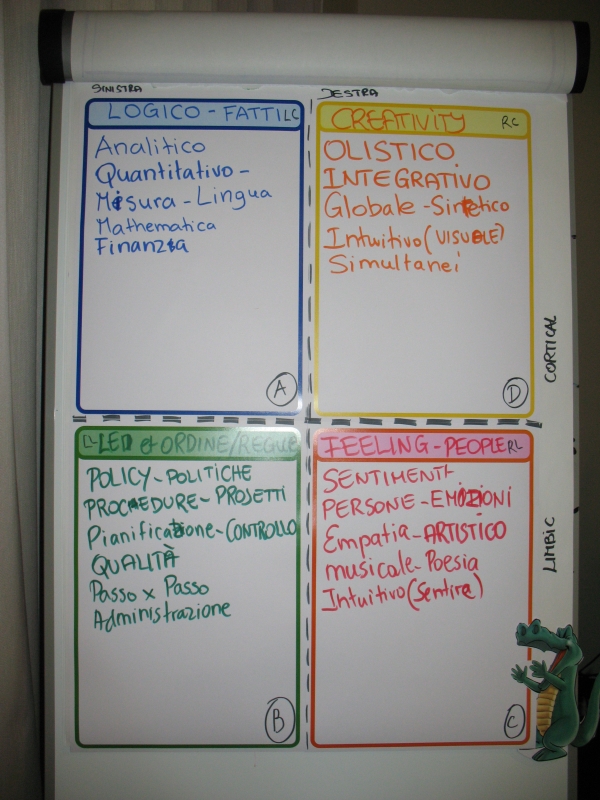 SINISTRA
DESTRA
LOGICO - FATTI LC
Analitico
Quantitativo -
Misura - Lingua
Mathematica
Finanzia
A
CREATIVITY RC
OLISTICO
INTEGRATIVO
Globale - Sintetico
Intuitivo (VISUELE)
Simultanei
D
CORTICAL
ORDINE/REGUE
POLICY - POLITICHE
PROCEDURE - PROSETTI
Pianificazione - CONTROLLO
QUALITÀ
Passo x Passo
Administrazione
B
FEELING - PEOPLE RL
SENTIMENTI
PERSONE - EMOZIONI
Empatia - ARTISTICO
musicale - Poesia
Intuitivo (Sentire)
C
LIMBIC